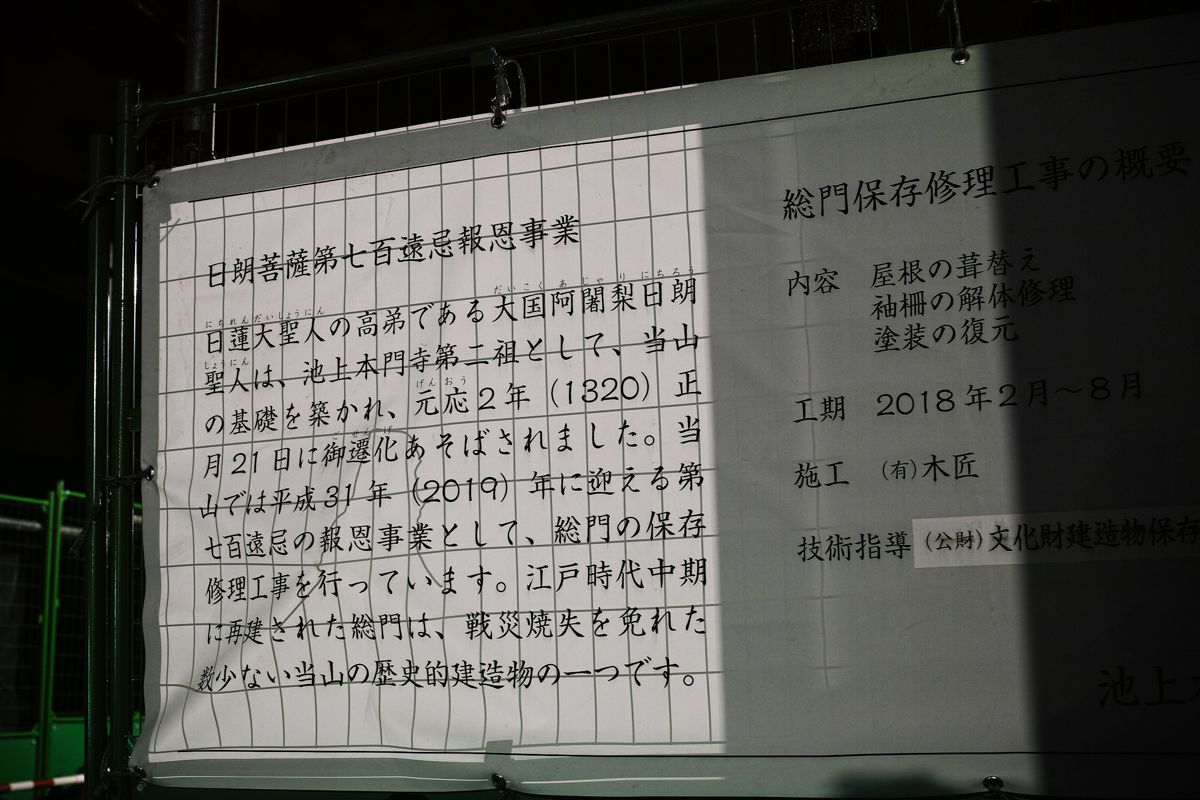 日朗菩薩第七百遠忌報恩事業
にちれんだいしょうにん だいこく あ じゃ り にちろう
日蓮大聖人の高弟である大国阿闍梨日朗
しょうにん
聖人は、池上本門寺第二祖として、当山
げんおう
の基礎を築かれ、元応2年（1320）正
ご せん げ
月21日に御遷化あそばされました。当
山では平成31年（2019）年に迎える第
七百遠忌の報恩事業として、総門の保存
修理工事を行っています。江戸時代中期
に再建された総門は、戦災焼失を免れた
数少ない当山の歴史的建造物の一つです。
総門保存修理工事の概要
内容 屋根の葺替え
袖柵の解体修理
塗装の復元
工期 2018年2月～8月
施工 （有）木匠
技術指導 （公財）文化財建造物保存
池上